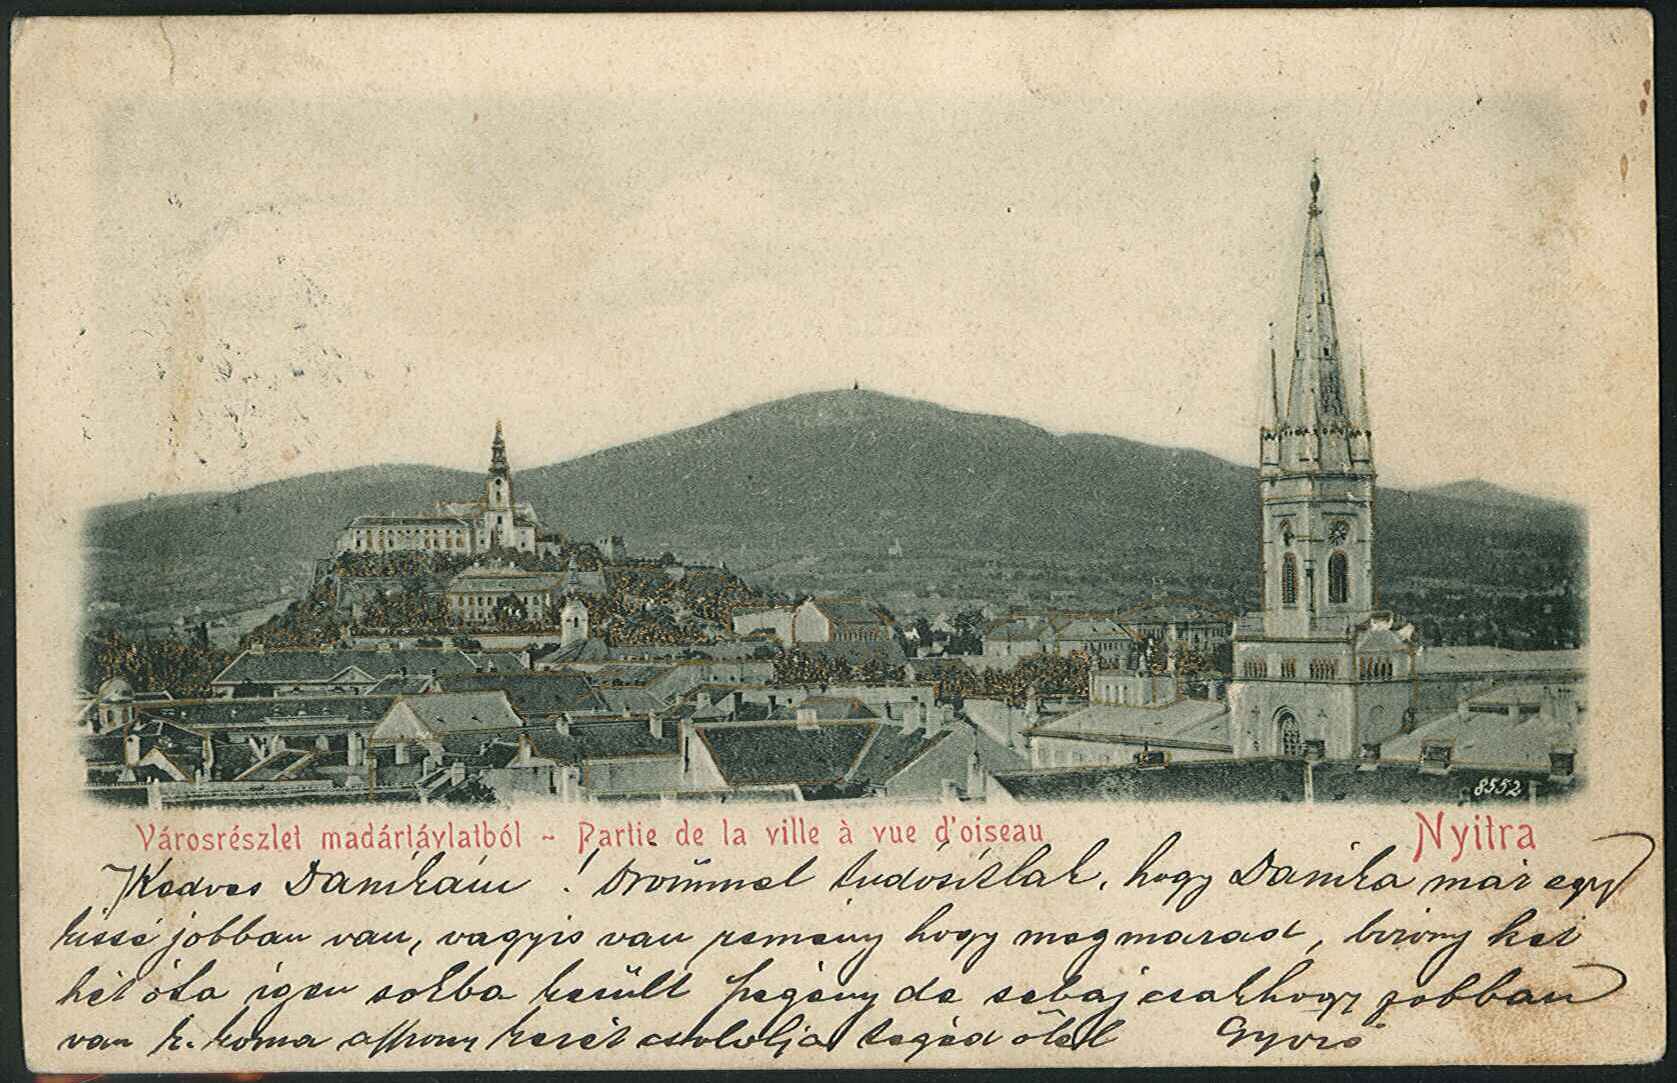 8552
Városrészlet madártávlatból ~ Partie de la ville à vue d'oiseau
Nyitra
Kedves Danikám! Örömmel tudósítlak, hogy Danika már egy
kissé jobban van, vagyis van remény hogy megmarad, bizony két
hét óta igen sokba került szegény de sebaj csakhogy jobban
van k. koma asszony kezét csókolja téged ölel Gyuró